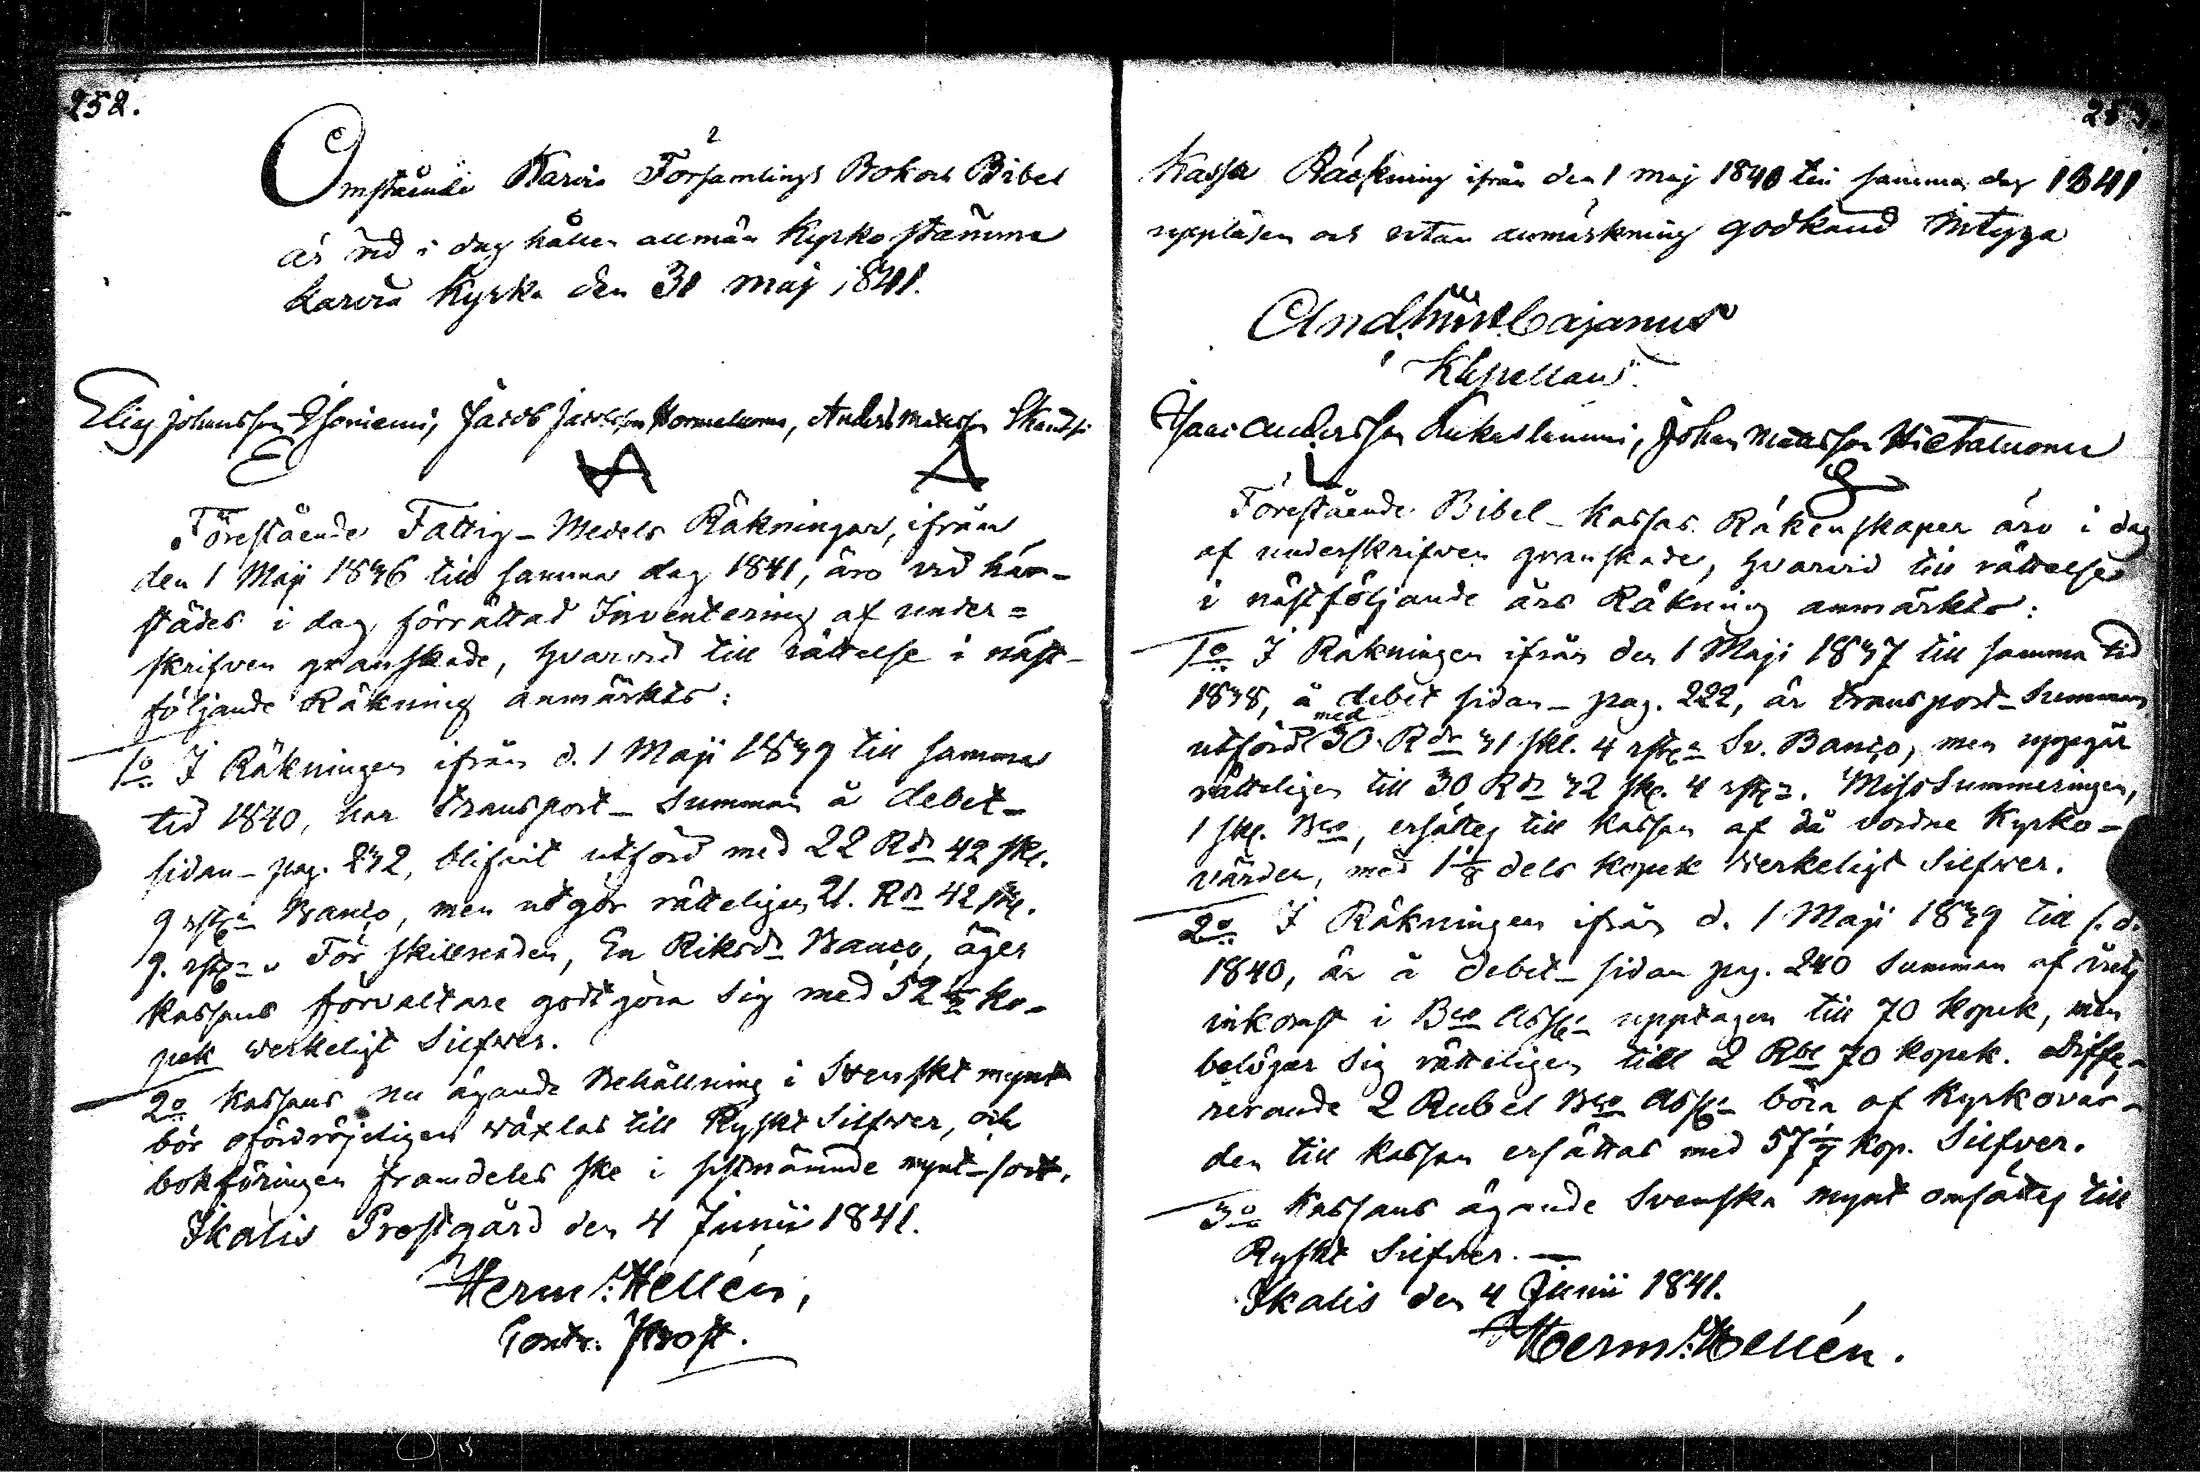 252.
Omstående Karvia Församlings Bok och Bibel
är vid i dag hållen allmän Kyrkostämma
Karvia Kyrka den 31 Maj 1841.
Elias Johansson Ylöniemi, Jacob Jacobsson Hormaluoma, Anders Mattsson Skantsi
Förestående Fattig-Medels Räkningar, ifrån
den 1 Maji 1836 till samma dag 1841, äro vid här-
städes i dag förrättad Inventering af under=
skrifven granskade, hvarvid till rättelse i näst-
följande Räkning anmärktes:
1o I Räkningen ifrån d. 1 Maji 1839 till samma
tid 1840, har transport-Summan å debet-
sidan-pag. 232, blifvit utförd med 22 Rdr 42 sk.
9 rst. Banco, men utgör rätteligen 21. Rdr 42 sk.
9. rst. För skillnaden, En Riksdr Banco, äger
kassans förvaltare godtgöra sig med 52 1/2 ko-
pek verkeligt Silfver.
2o Kassans nu ägande Behållning i Svenskt mynt
bör ofördröjeligen växlas till Ryskt Silfver, och
bokföringen framdeles ske i sistnämnde mynt-sort.
Ikalis Prostgård den 4 Junii 1841.
Herm: Hellén,
Contr. Prost.
253.
Kassa Räkning ifrån den 1 Maj 1840 till samma dag 1841
uppläsen och utan anmärkning godkänd intyga
And. Cajanus
Kapellan
Isaac Andersson Lukaslammi, Johan Mattsson Hietaluoma
Förestående Bibel-Kassas Räkenskaper äro i dag
af underskrifven granskade, hvarvid till rättelse
i nästföljande års Räkning anmärktes:
1o I Räkningen ifrån den 1 Maji 1837 till samma tid
1838, å debet sidan-pag. 222, är transport-Summan
utförd med 30 Rdr 31 skl. 4 rst. Sv. Banco, men uppgår
rätteligen till 30 Rdr 32 sk. 4 rst. Miss Summeringen,
1 sk. Bco, ersättes till kassan af då vordne Kyrko-
värden, med 1 1/8 dels kopek verkeligt Silfver.
2o I Räkningen ifrån d. 1 Maji 1839 till s. d.
1840, är å debet-sidan pag. 240 Summan af årets
inkomst i Bco Ass. upptagen till 70 kopek, men
belöper sig rätteligen till 2 Rbl 70 kopek. Diffe-
rerande 2 Rubel Bco Ass. böra af Kyrkovär-
den till kassan ersättas med 57 1/7 kop. Silfver.
3o Kassans ägande Svenska mynt omsättes till
Ryskt Silfver.
Ikalis den 4 Junii 1841.
Herm: Hellén.